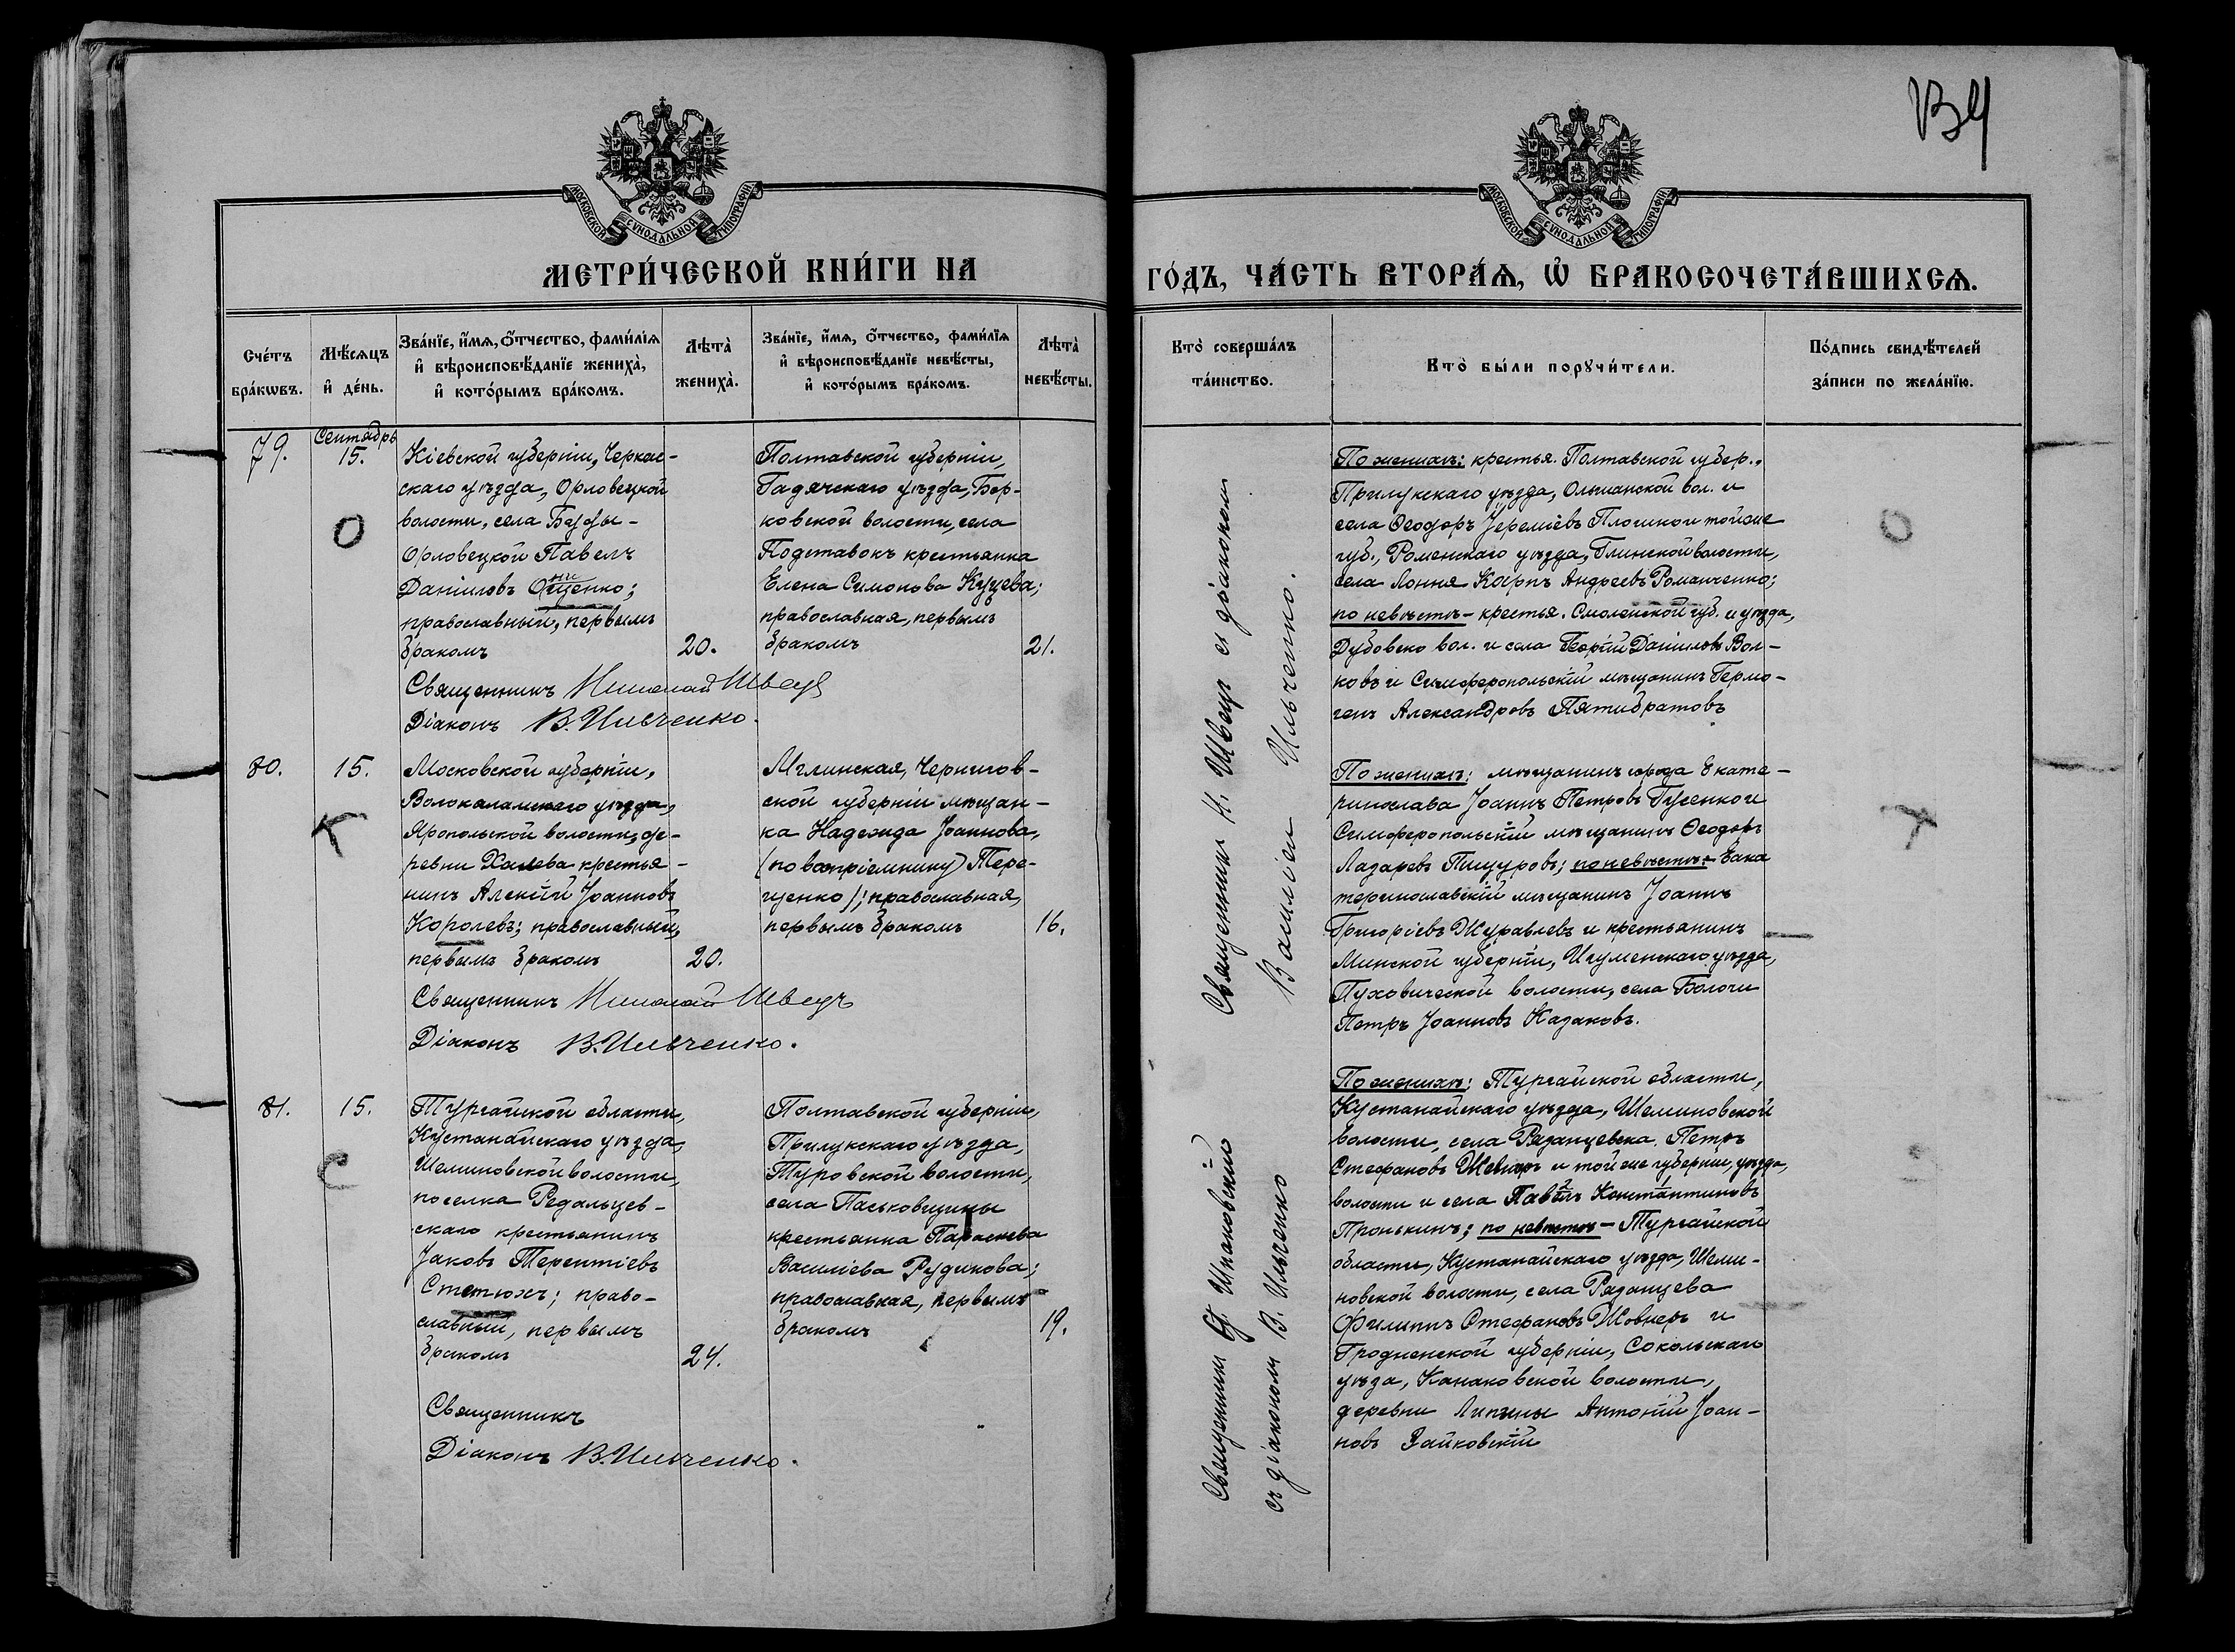 В4
МОСКОВСКОЙ СѴНОДАЛЬНОЙ ТИПОГРАФІИ
МЕТРИ́ЧЕСКОЙ КНИ́ГИ НА
Сче́тъ бра́кѡвъ.
Мѣ́сѧцъ и҆ де́нь.
Зва́нїе, и҆́мѧ, ѻ҆́тчество, фами́лїѧ
и҆ вѣроисповѣ́данїе жениха̀,
и҆ кото́рымъ бра́комъ.
Лѣта̀ жениха̀.
Зва́нїе, и҆́мѧ, ѻ҆́тчество, фами́лїѧ
и҆ вѣроисповѣ́данїе невѣ́сты,
и҆ кото́рымъ бра́комъ.
Лѣта̀ невѣ́сты.
79.
Сентябрь
15.
О
Кіевской губерніи, Черкас-
скаго уѣзда, Орловецкой
волости, села
Орловецкой Павелъ
Даніиловъ
православный, первымъ
бракомъ
20.
Полтавской губерніи,
Гадячскаго уѣзда, Бор-
ковской волости, села
Подставокъ крестьянка
Елена Симонова Куцева;
православная, первымъ
бракомъ
21.
Священникъ Николай Швецъ
Діаконъ В. Ильченко.
80.
15.
К
Московской губерніи,
Волокаламскаго уѣзда,
Яропольской волости, де-
ревни Халева крестья-
нинъ Алексій Іоанновъ
Королевъ; православный,
первымъ бракомъ
20.
Мглинская, Чернигов-
ской губерніи мѣщан-
ка Надежда Іоаннова,
(по воспріемнику) Тере-
щенко); православная,
первымъ бракомъ
16.
Священникъ Николай Швецъ
Діаконъ В. Ильченко.
81.
15.
С
Тургайской области,
Кустанайскаго уѣзда,
Шеминовской волости,
поселка Редальцев-
скаго крестьянинъ
Іаковъ Терентіевъ
Стетюхъ; право-
славный, первымъ
бракомъ
24.
Полтавской губерніи,
Прилукскаго уѣзда,
Туровской волости,
села Паськовщины
крестьянка Параскева
Василіева Рудикова;
православная, первымъ
бракомъ
19.
Священникъ
Діаконъ В. Ильченко.
МОСКОВСКОЙ СѴНОДАЛЬНОЙ ТИПОГРАФІИ
ГО́ДЪ, ЧА́СТЬ ВТОРА́Ѧ, Ѡ҆ БРАКОСОЧЕТА́ВШИХСѦ.
Кто̀ соверша́лъ
та́инство.
Кто̀ бы́ли порꙋчи́тели.
По́дпись свидѣ́телей
за́писи по жела́нїю.
Священникъ Н. Швецъ съ діакономъ
Василіемъ Ильченко.
По женихѣ: крестья. Полтавской губер.,
Прилукскаго уѣзда, Ольшанской вол. и
села Ѳеодоръ Іереміевъ той же
губ., Роменскаго уѣзда, Глинской волости,
села Карпъ Андреевъ Романченко;
по невѣстѣ - крестья. Смоленской губ. и уѣзда,
Дубовско вол. и села Георгій Даніиловъ Вол-
ковъ и Симферопольскій мѣщанинъ Гермо-
генъ Александровъ Пятибратовъ
О
По женихѣ: мѣщанинъ города Екате-
ринослава Іоаннъ Петровъ Гусенко и
Симферопольскій мѣщанинъ Ѳеодоръ
Лазаревъ Пищуровъ; по невѣстѣ: - Екa
теринославскій мѣщанинъ Іоаннъ
Григоріевъ Журавлевъ и крестьянинъ
Минской губерніи, Игуменскаго уѣзда,
Пуховичесской волости, села Болочи
Петръ Іоанновъ Казаковъ.
Священникъ Шпаковскій
съ діакономъ В. Ильченко
По женихѣ: Тургайской области,
Кустанайскаго уѣзда, Шеминовской
волости, села Рязанцевска Петръ
Стефановъ и той же губерніи, уѣзда,
волости и села Павелъ Константиновъ
Пронькинъ; по невѣстѣ - Тургайской
области, Кустанайскаго уѣзда, Шеми-
новской волости, села Рязанцева
Филиппъ Стефановъ Шовкеръ и
Гродненской губерніи, Сокольскаго
уѣза, Канаковской волости,
деревни Липины Антоній Іоан-
новъ Зайковскій